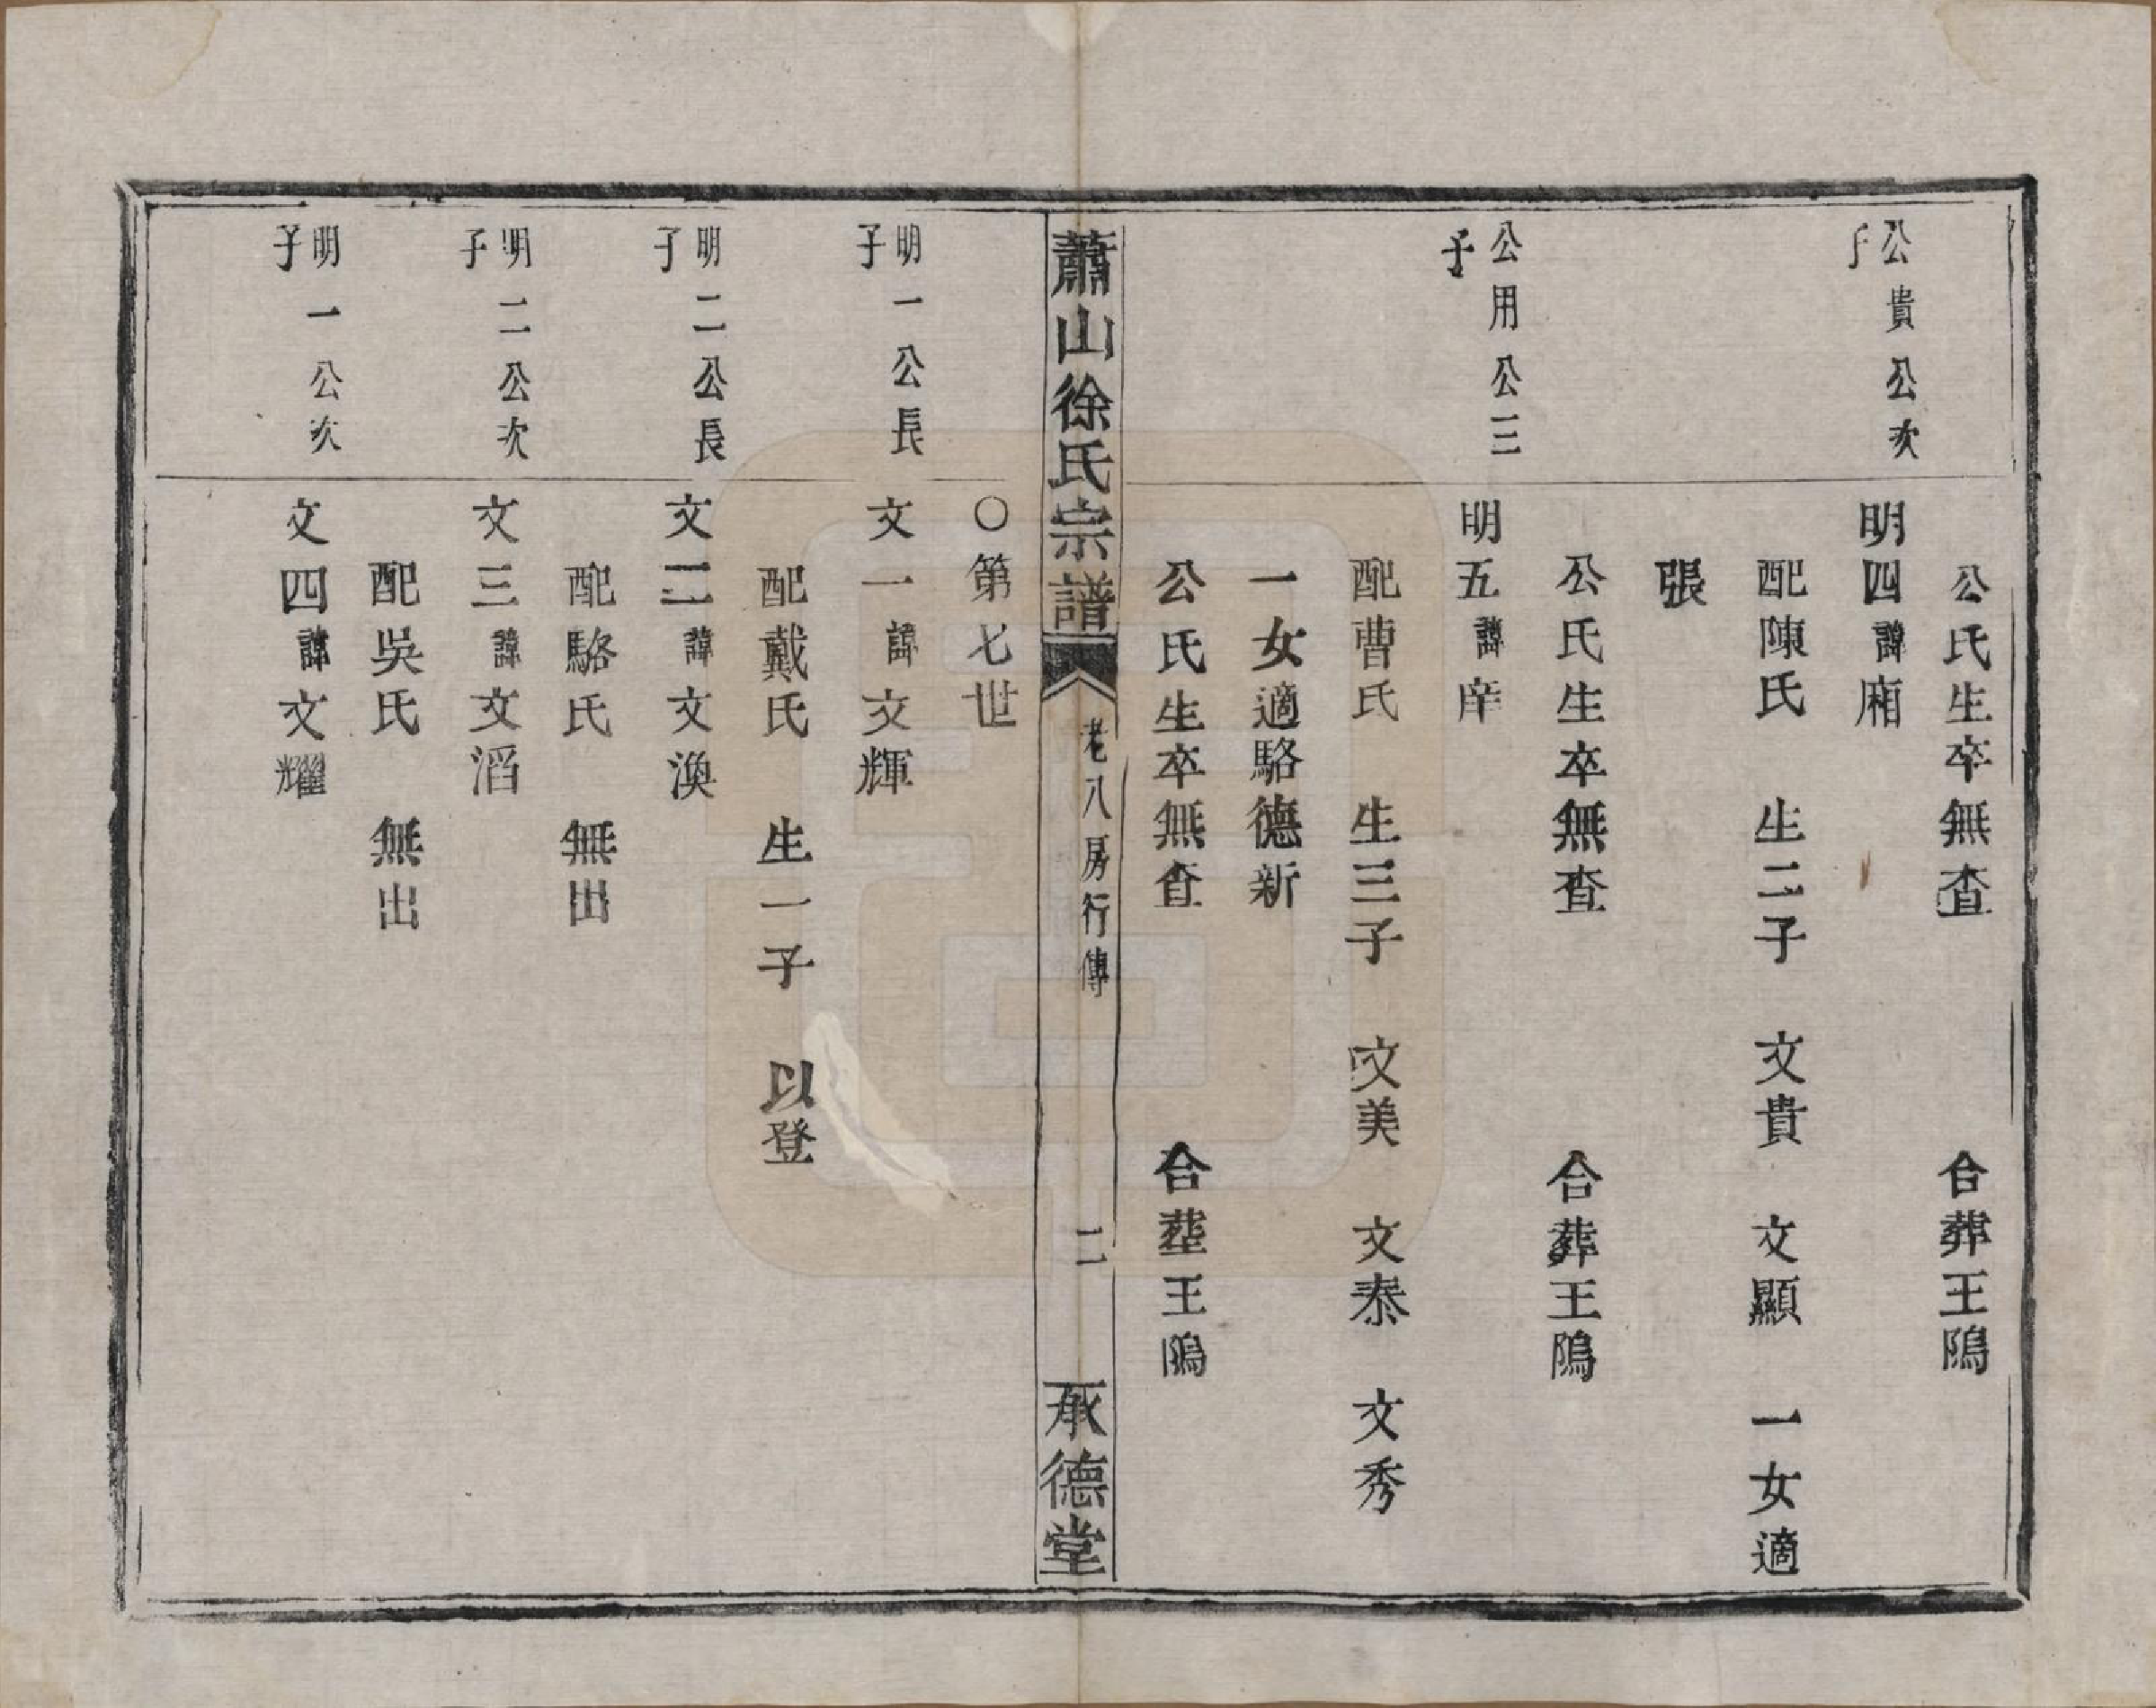 公氏生卒無查 合葬王隖
公貴公次
子
明四諱廂
配陳氏 生二子 文貴 文顯 一女適
張
公氏生卒無查 合葬王隖
公用公三
子
明五諱庠
配曹氏 生三子 文美 文泰 文秀
一女適駱德新
公氏生卒無查 合塟王隖
蕭山徐氏宗譜 老八房行傳 二 承德堂
○第七世
明一公長
子
文一諱文輝
配戴氏 生一子 以登
明二公長
子
文二諱文渙
配駱氏 無出
明二公次
子
文三諱文滔
配吳氏 無出
明一公次
子
文四諱文耀